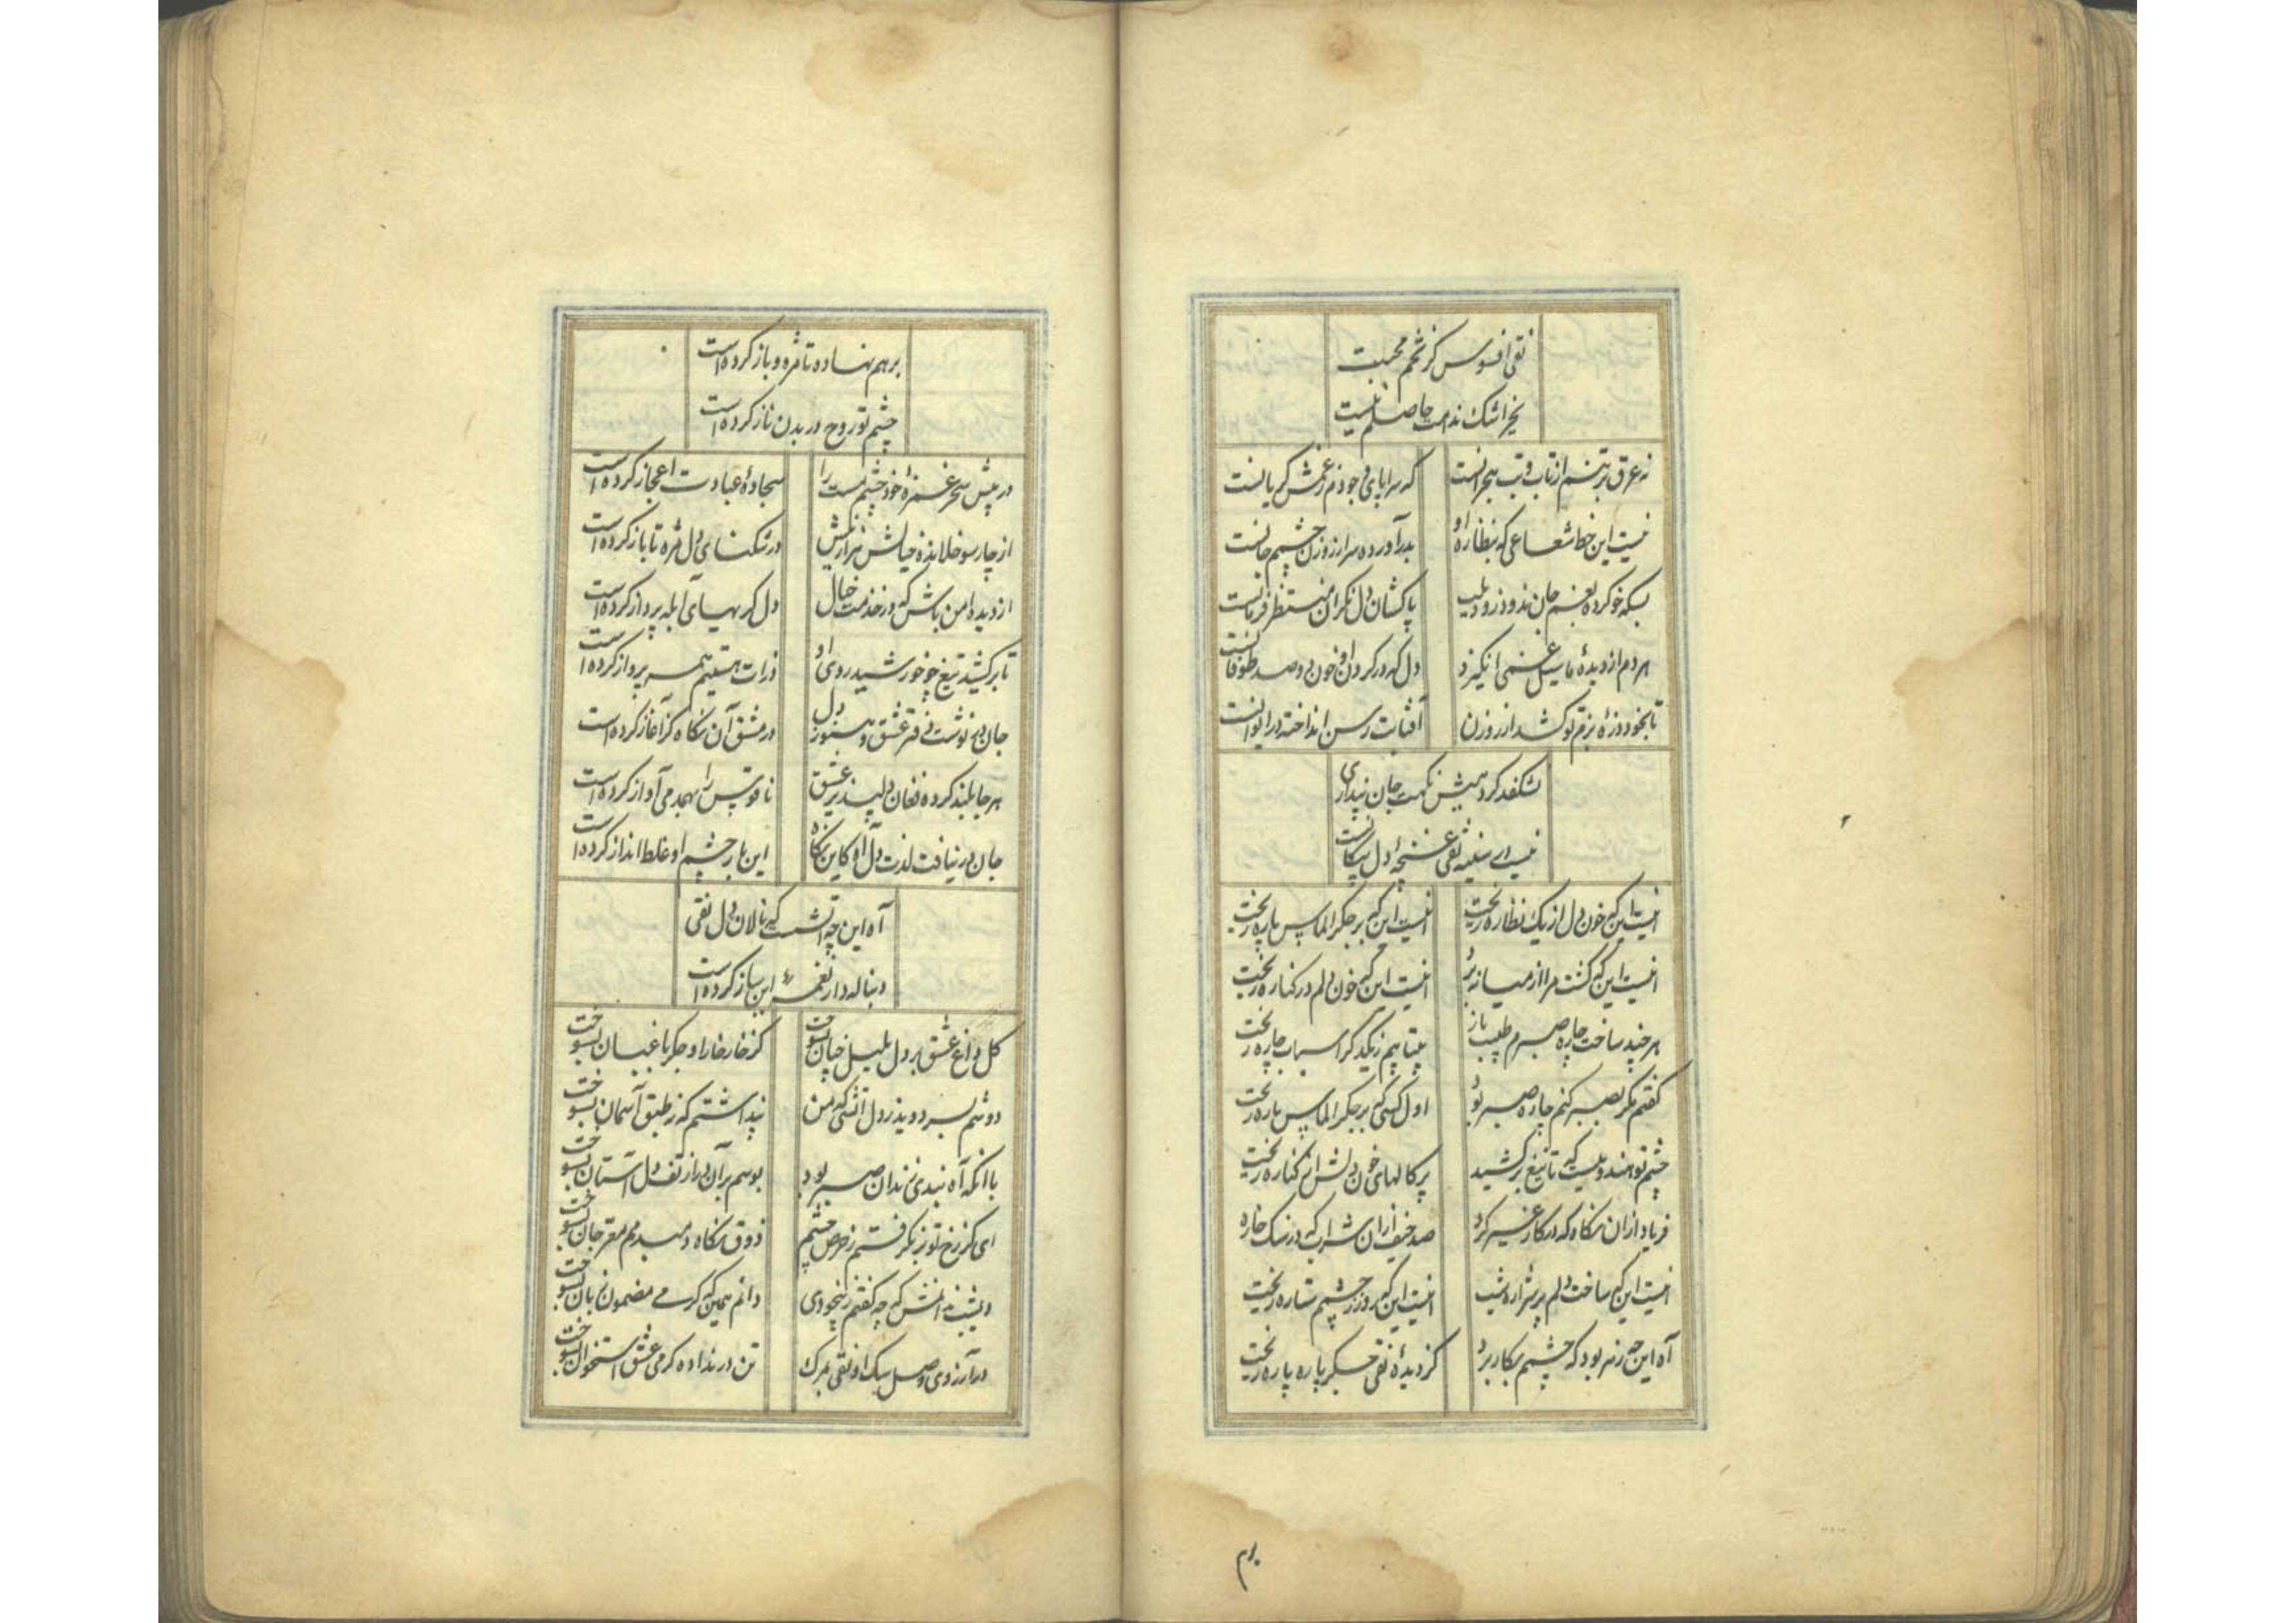 نقی افسوس کز تخم محبت
بجز اشک ندامت حاصلم نیست
نه عرق بر تنم از تاب و تب هجرانست
که سراپای وجودم ز غمش گریانست
نیست این خط شعاعی که بنظاره او
بدر آورده سر از روزن چشم جانست
بسکه خو کرده بغم جان ندود زود بلب
پاکشان دل نگران منتظر فرمانست
هر دم از دیده ما سیل غمی انگیزد
دل که در گردد او خون و صد طوفانست
تا بخود ذره بزم تو کشد از روزن
آفتابت رسن انداخته در ایوانست
نشکفد گر دهمش نکهت جان پنداری
نیست در سینه نقی غنچهٔ دل پیکانست
اینست این که خون دل از یک نظاره ریخت
اینست این که بر جگر الماس پاره ریخت
اینست این که گشت مرا از میانه برد
اینست این که خون دلم در کناره ریخت
هر چند ساخت چاره صبرم طبیب باز
بیتابیم ز یکدگر اسباب چاره ریخت
گفتم مگر بصبر کنم چاره صبر تو
اول کسی که بر جگر الماس پاره ریخت
چشم تو هندوییست که تا تیغ برکشید
پرکالهای خون دلش از کناره ریخت
فریاد از ان نگاه که در کار غیر کرد
صد حیف از ان شراب که در سنگ خاره ریخت
اینست این که ساخت دلم پر شراره شب
اینست این که روز ز چشمم ستاره ریخت
آه این چه زهر بود که چشمم بکار برد
کز دیدهٔ نقی جگر پاره پاره ریخت
برهم
برهم نهاده تا مژه و باز کرده است
چشم تو روح در بدن ناز کرده است
در پیش سحر غمزهٔ خود چشم مست را
سجادهٔ عبادت اعجاز کرده است
از چارسو خلانده خیالش هزار نیش
در تنگنای دل مژه تا باز کرده است
از دیده امن باش که در خدمت خیال
دل گریهای آبله پرداز کرده است
تا برکشید تیغ چو خورشید روی او
ذرات هستیم همه پرواز کرده است
جان دهر نوشت دفتر عشق و هنوز دل
در مشق آن نگاه کز آغاز کرده است
هر جا بلند کرده فغان دلپذیر عشق
ناقوس را بهمدمی آواز کرده است
جان در نیافت لذت دل آه کاین نگاه
این بار چشم او غلط انداز کرده است
آه این چه آتشست که نالان دل نقی
دنباله دار نغمهٔ این ساز کرده است
گل داغ عشق بر دل بلبل چنان بسوخت
کز خار خار او جگر باغبان بسوخت
دوشم بسر دوید ز دل آتشی که من
پنداشتم که نه طبق آسمان بسوخت
با آنکه آه بندی زندان صبر بود
بوسم بر آن در از تف دل آستان بسوخت
ای کز رخ تو برنگرفتم ز حرص چشم
ذوق نگاه دمبدمم مغز جان بسوخت
دیشب ندانمش که چه گفتم ز بیخودی
دانم همین که گرمی مضمون زبان بسوخت
در آرزوی وصل سگ او نقی بمرگ
تن در نداده گرمی عشق استخوان بسوخت